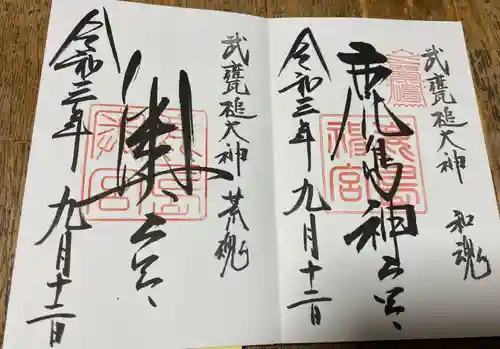 武甕槌大神 和魂
鹿嶋神宮
令和三年 九月十二日
武甕槌大神 荒魂
奥宮
令和三年 九月十二日